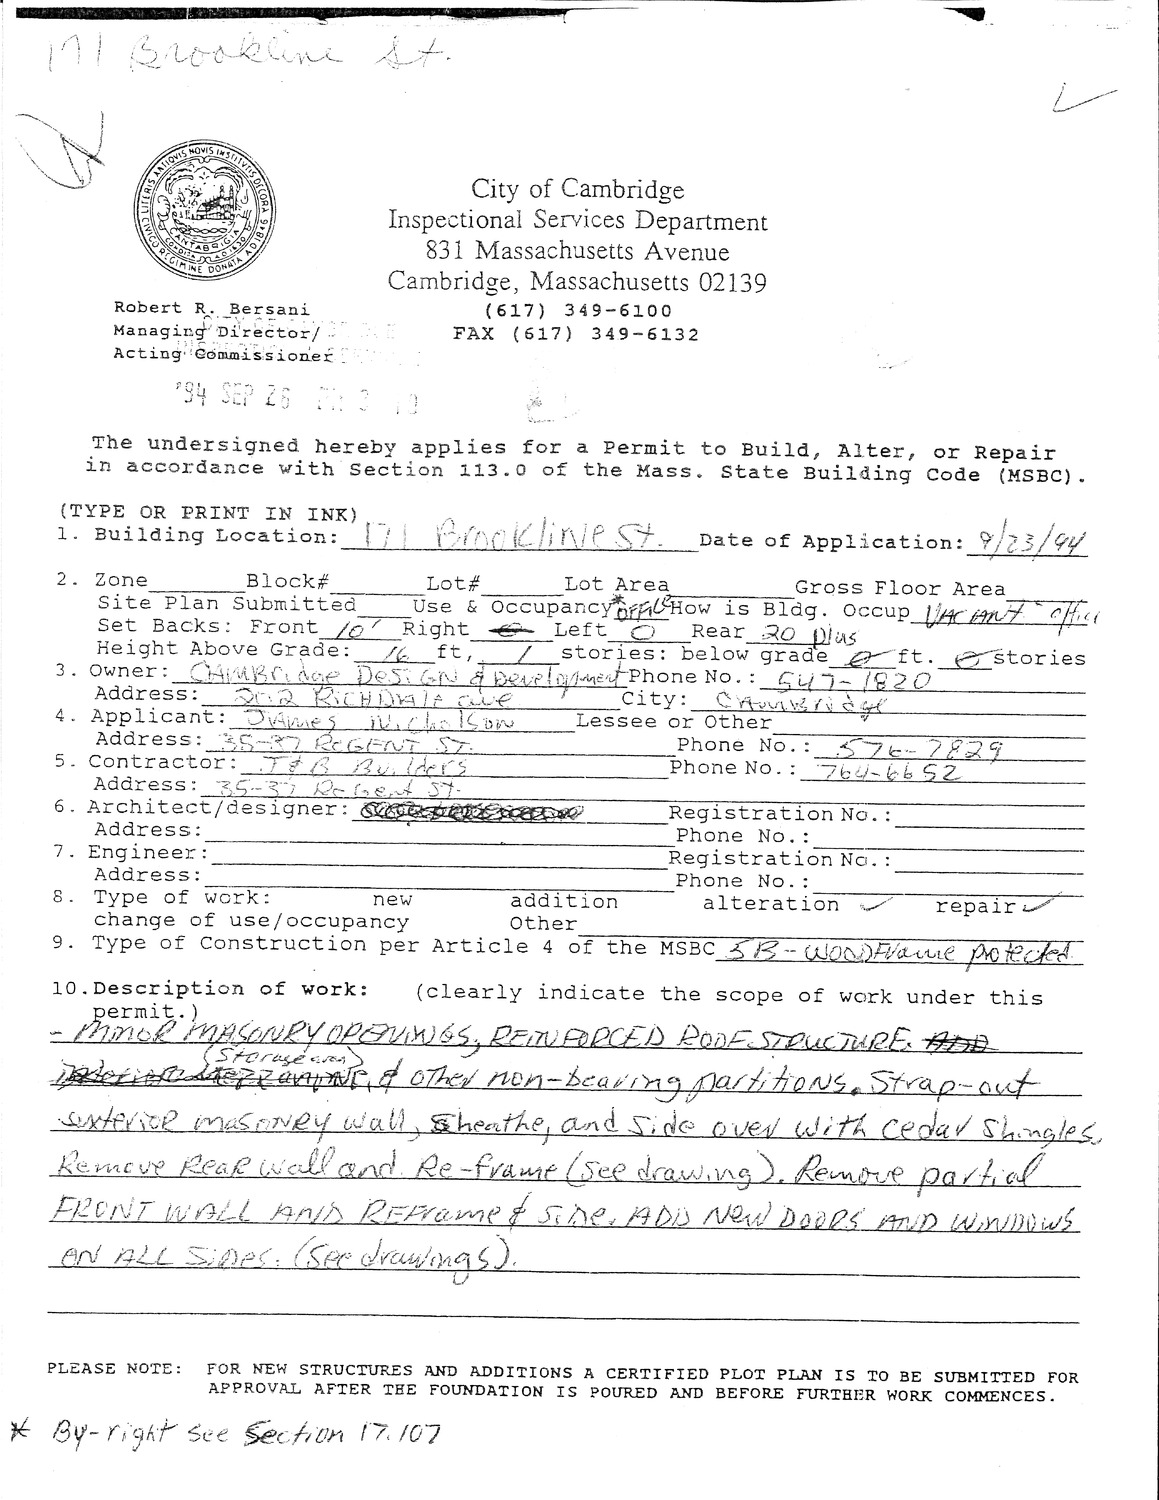 171 Brookline St.
CIVICO REGIMINE DONATA A.D. 1846 LITERIS ANTIQUIS NOVIS INSTITUTIS DECORA
CANTABRIGIA
City of Cambridge
Inspectional Services Department
831 Massachusetts Avenue
Cambridge, Massachusetts 02139
Robert R. Bersani (617) 349-6100
Managing Director/ FAX (617) 349-6132
Acting Commissioner
'94 SEP 26
The undersigned hereby applies for a Permit to Build, Alter, or Repair
in accordance with Section 113.0 of the Mass. State Building Code (MSBC).
(TYPE OR PRINT IN INK)
1. Building Location: 171 Brookline St. Date of Application: 9/23/94
2. Zone Block# Lot# Lot Area Gross Floor Area
Site Plan Submitted Use & Occupancy * OFFICE How is Bldg. Occup VACANT - office
Set Backs: Front 10' Right 0 Left 0 Rear 20 plus
Height Above Grade: 16 ft, 1 stories: below grade 0 ft. 0 stories
3. Owner: CAMBRidge DESIGN & Development Phone No.: 547-1820
Address: 202 RICHDALE ave City: CAMBRidge
4. Applicant: JAMES Nicholson Lessee or Other
Address: 35-37 REGENT ST. Phone No.: 576-7829
5. Contractor: J&B Builders Phone No.: 764-6652
Address: 35-37 Regent St.
6. Architect/designer: Registration No.:
Address: Phone No.:
7. Engineer: Registration No.:
Address: Phone No.:
8. Type of work: new addition alteration ✓ repair ✓
change of use/occupancy Other
9. Type of Construction per Article 4 of the MSBC 5B - WOODFrame protected
10. Description of work: (clearly indicate the scope of work under this
permit.)
- MINOR MASONRY OPENINGS, REINFORCED ROOF STRUCTURE. ADD
(Storage area)
interior MEZZANINE, & other non-bearing partitions. Strap-out
exterior masonry wall, sheathe, and side over with cedar shingles.
Remove REAR wall and Re-frame (see drawing). Remove partial
FRONT WALL AND REFrame & SIDE. ADD NEW DOORS AND WINDOWS
ON ALL SIDES. (See drawings).
PLEASE NOTE: FOR NEW STRUCTURES AND ADDITIONS A CERTIFIED PLOT PLAN IS TO BE SUBMITTED FOR
APPROVAL AFTER THE FOUNDATION IS POURED AND BEFORE FURTHER WORK COMMENCES.
* By-right see Section 17.107